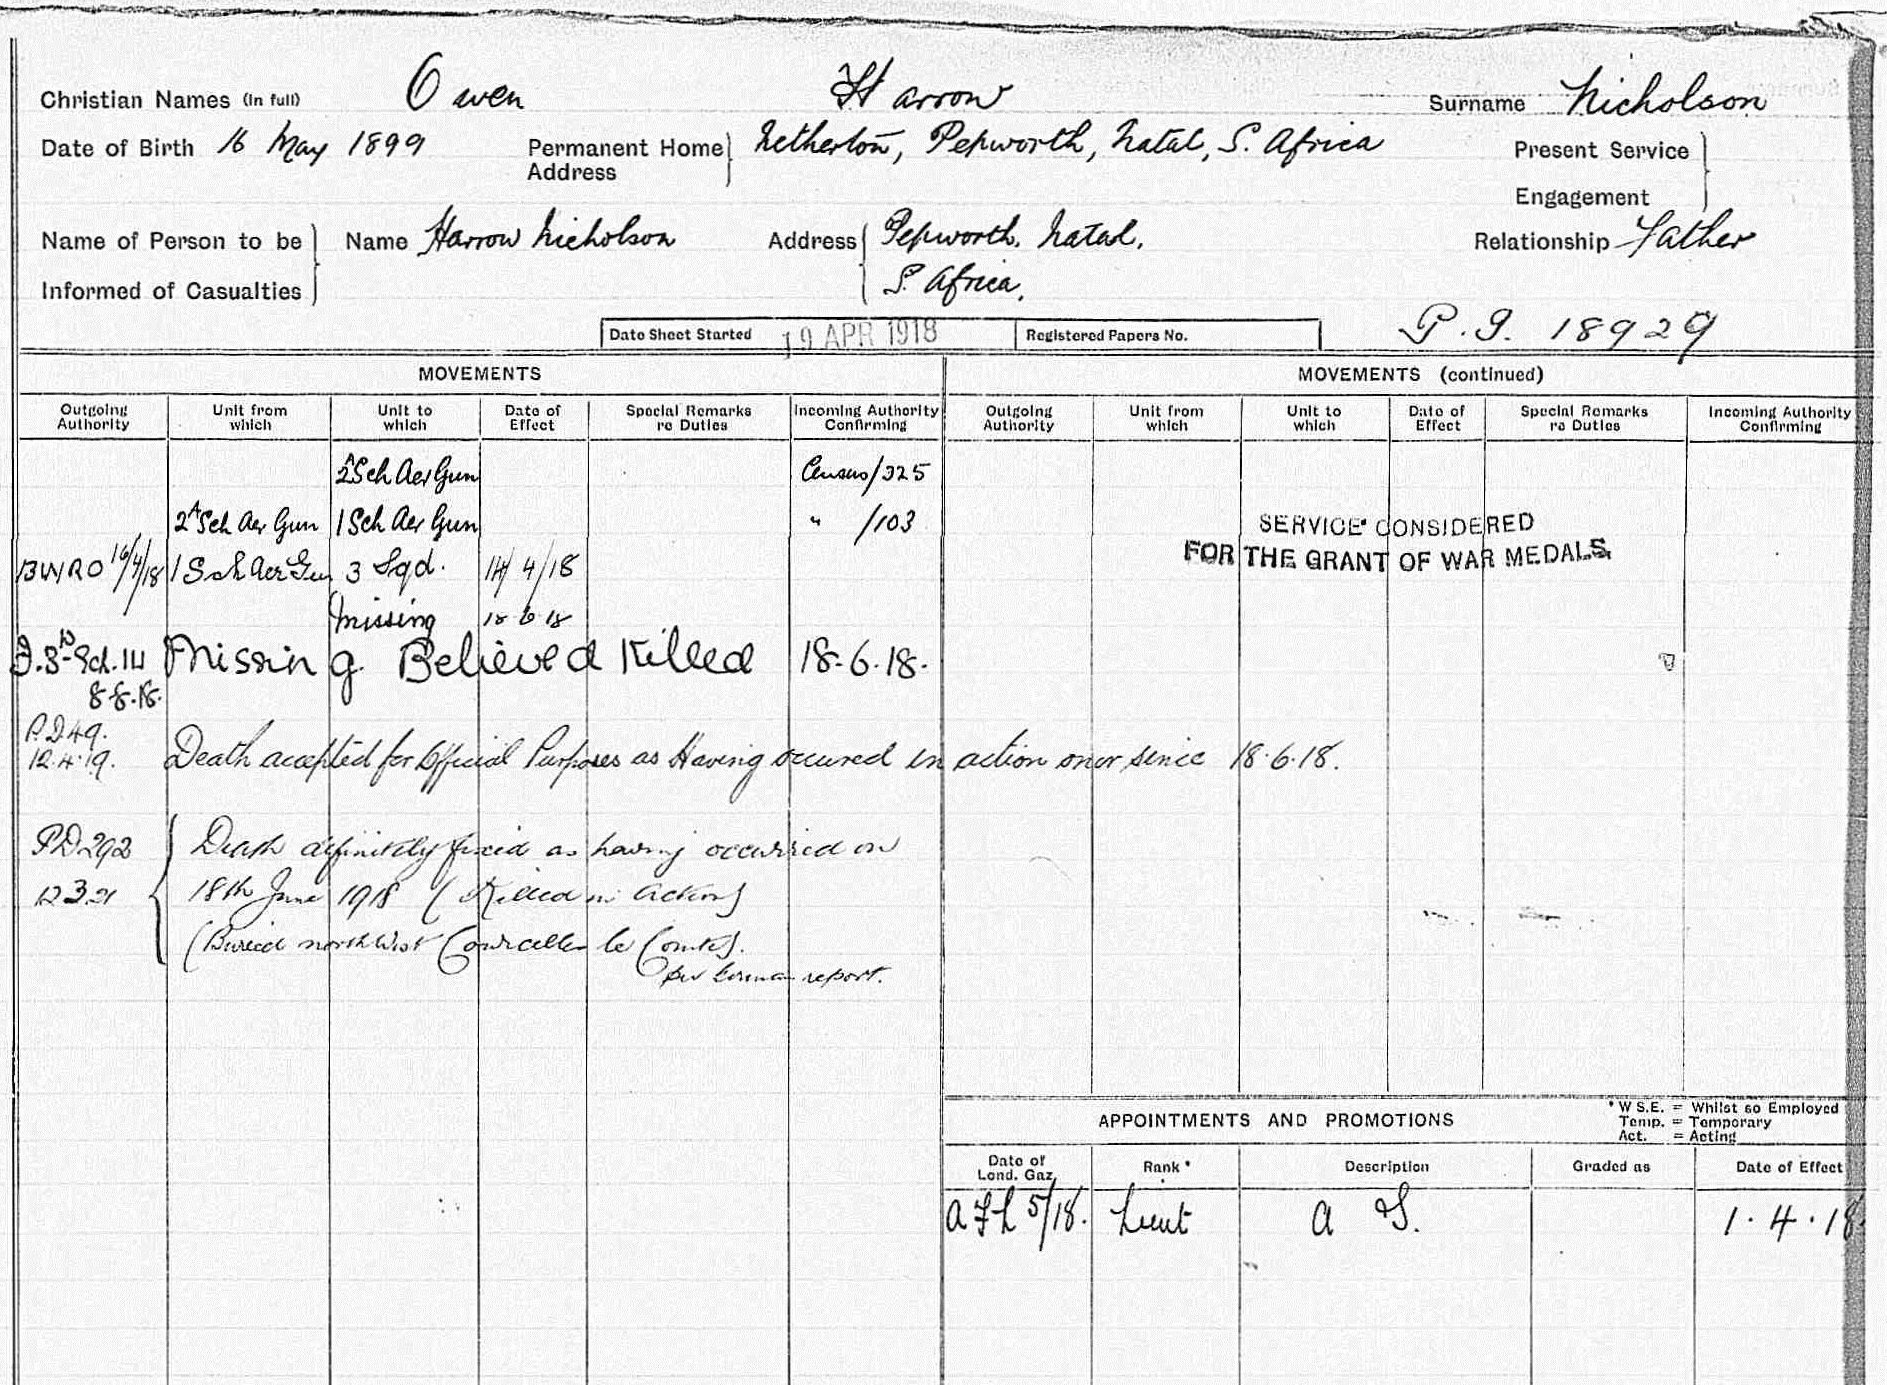 Christian Names (in full) Owen Harrow Surname Nicholson
Date of Birth 16 May 1899 Permanent Home Address Netherton, Pepworth, Natal, S. Africa Present Service Engagement
Name of Person to be Informed of Casualties Name Harrow Nicholson Address Pepworth, Natal, S. Africa, Relationship Father
Date Sheet Started 19 APR 1918 Registered Papers No. P. I. 18929
MOVEMENTS MOVEMENTS (continued)
Outgoing Authority Unit from which Unit to which Date of Effect Special Remarks re Duties Incoming Authority Confirming Outgoing Authority Unit from which Unit to which Date of Effect Special Remarks re Duties Incoming Authority Confirming
2A Sch Aer Gun Census/325
2A Sch Aer Gun 1 Sch Aer Gun " /103
SERVICE CONSIDERED
FOR THE GRANT OF WAR MEDALS.
BWRO 16/4/18 1 Sch Aer Gun 3 Sqd. 14/4/18
Missing 18-6-18
Missing Believed Killed 18-6-18.
8-8-18.
P.D 49.
12.4.19. Death accepted for Official Purposes as Having occured in action on or since 18.6.18.
PD 292 Death definitely fixed as having occurred on
12 3 21 18th June 1918 (Killed in Action)
(Buried north West Courcelles le Comte).
per German report.
APPOINTMENTS AND PROMOTIONS
* W S.E. = Whilst so Employed
Temp. = Temporary
Act. = Acting
Date of Lond. Gaz. Rank * Description Graded as Date of Effect
A F L 5/18. Lieut A & S. 1.4.18.